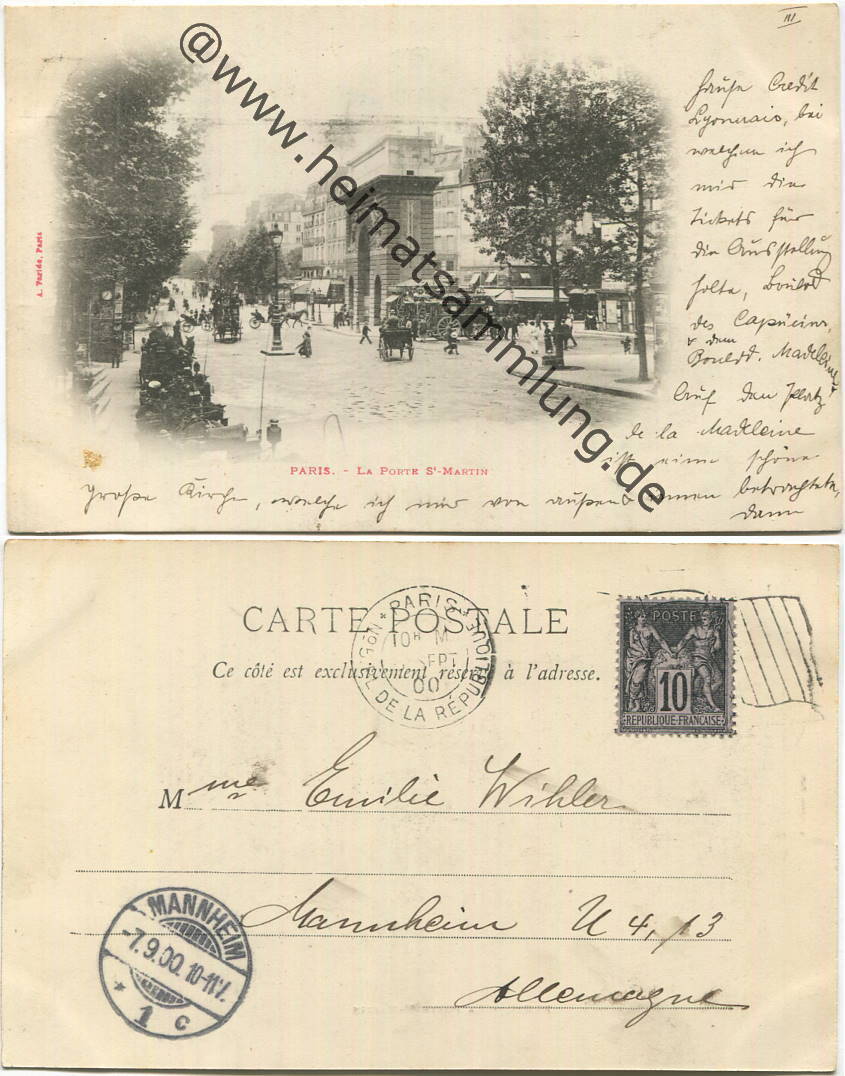 III
Hause Credit
Lyonnais, bei
welchem ich
mir die
Tickets für
die Ausstellung
holte, Boulvd
des Capucines,
& dem
Boulvd. Madeleine
Auf dem Platz
de la Madeleine
ist eine schöne
große Kirche, welche ich mir von außen & innen betrachtete,
dann
A. Taride, Paris
PARIS. - LA PORTE St-MARTIN
@www.heimatsammlung.de
CARTE POSTALE
Ce côté est exclusivement réservé à l'adresse.
PARIS
10H M
SEPT
00
DE LA RÉPUBLIQUE
POSTE
10
REPUBLIQUE FRANÇAISE
Mme Emilie Wihler
Mannheim U 4, 13
Allemagne
MANNHEIM
-7.9.00.10-11V.
* 1 c